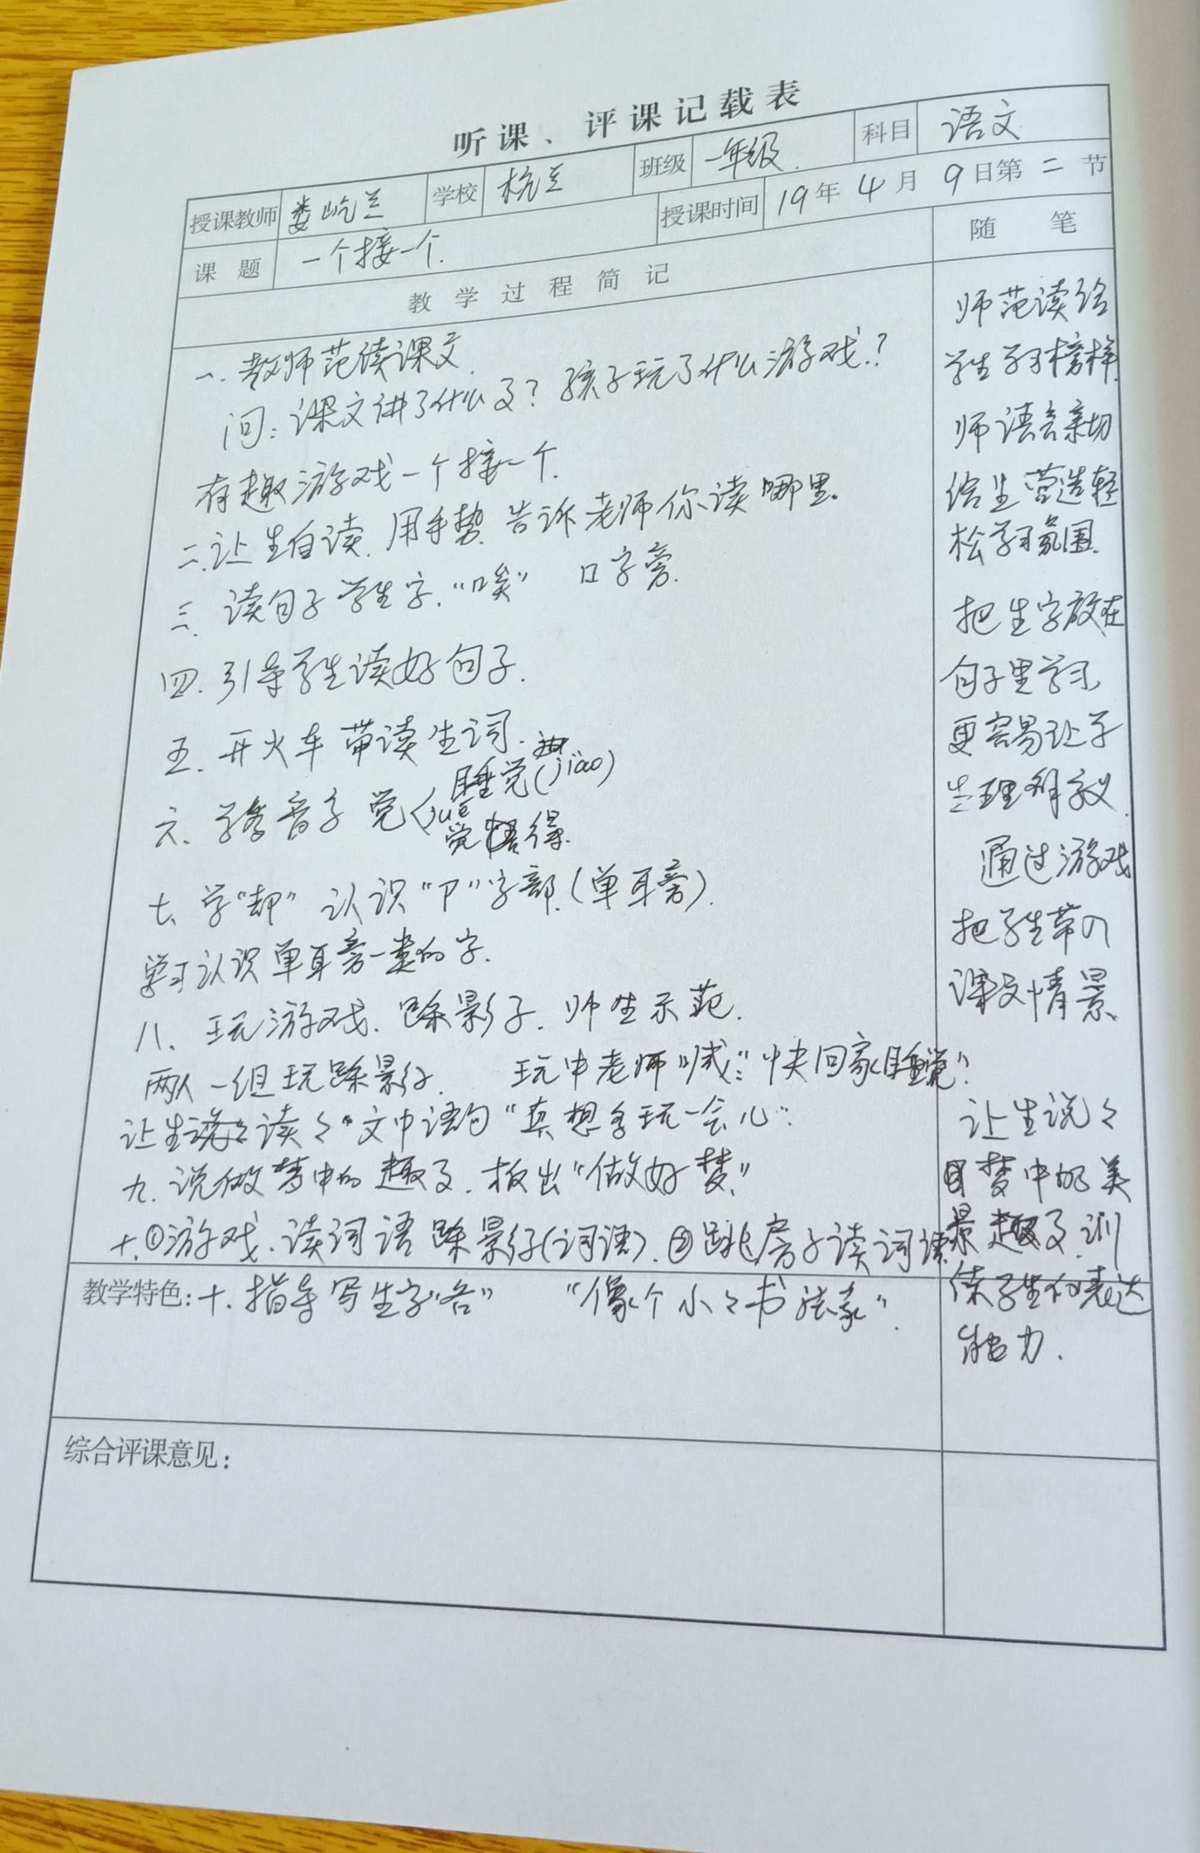 听课、评课记载表
授课教师 娄屹兰 学校 杭兰 班级 一年级. 科目 语文
课题 一个接一个. 授课时间 19年4月9日第二节
教学过程简记 随笔
一. 教师范读课文.
问：课文讲了什么了？孩子玩了什么游戏？
有趣游戏一个接一个.
二.让生自读.用手势 告诉老师你读哪里.
三. 读句子学生字.“唉” 口字旁.
四. 引导学生读好句子.
五. 开火车带读生词.
六. 学多音字 觉 睡觉(jiào)
jué 觉得.
七. 学“却” 认识“卩”字部.(单耳旁).
学习认识单耳旁一类的字.
八. 玩游戏. 踩影子. 师生示范.
两人一组玩踩影子. 玩中老师喊:“快回家睡觉”.
让生说々读々“文中语句“真想多玩一会儿”.
九. 说做梦中的趣事. 板出“做好梦”
十.①游戏.读词语 踩影子(词语). ②跳房子读词语
教学特色: 十. 指导写生字“各” “像个小々书法家”.
综合评课意见：
师范读给
学生学习榜样.
师语言亲切
给生营造轻
松学习氛围.
把生字放在
句子里学习,
更容易让学
生理解字义.
通过游戏
把学生带入
课文情景.
让生说々
梦中的美
景趣事.训
练学生的表达
能力.